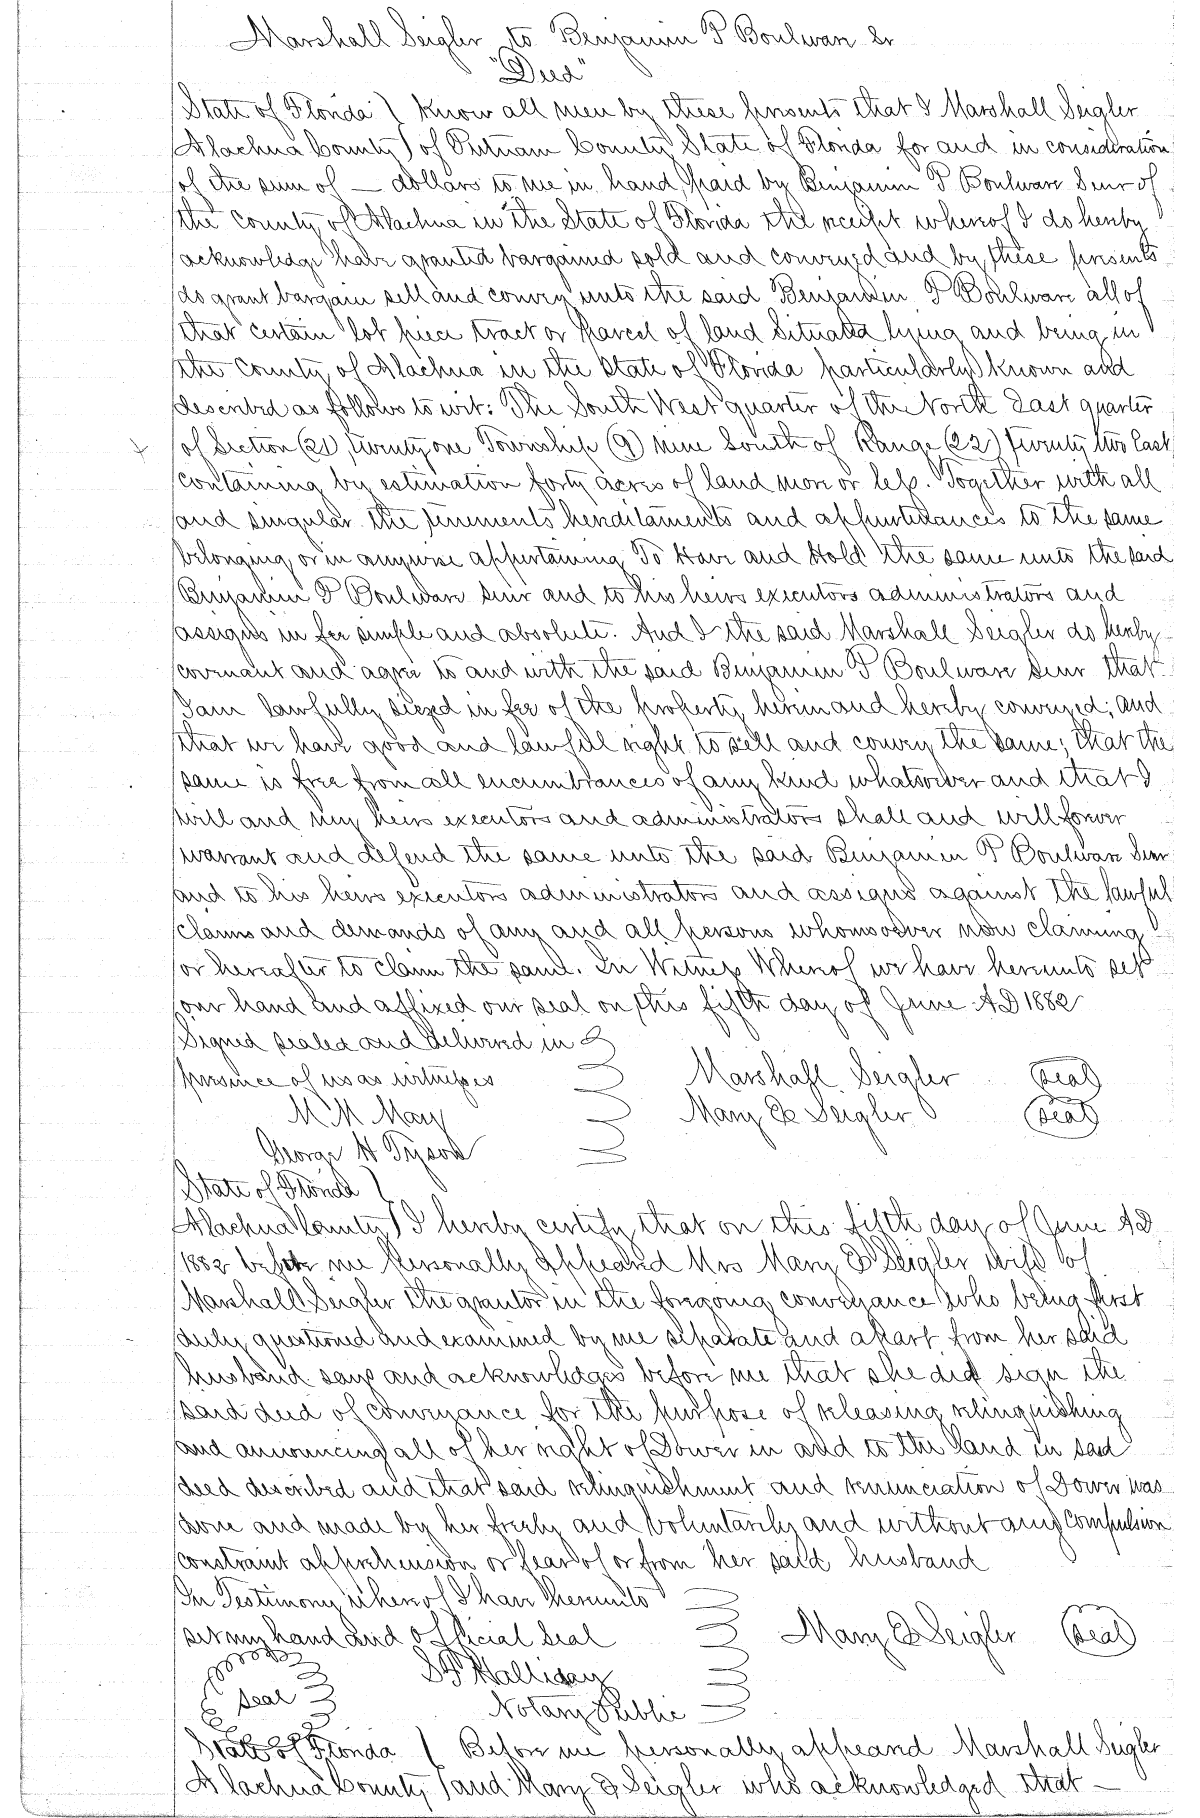 Marshall Seigler to Benjamin P Boulware Sr
"Deed"
State of Florida } Know all men by these presents that I Marshall Seigler
Alachua County } of Putnam County State of Florida for and in consideration
of the sum of — dollars to me in hand paid by Benjamin P Boulware Senr of
the County of Alachua in the State of Florida the receipt whereof I do hereby
acknowledge have granted bargained sold and conveyed and by these presents
do grant bargain sell and convey unto the said Benjamin P Boulware all of
that certain lot piece tract or parcel of land situated lying and being in
the County of Alachua in the State of Florida particularly known and
described as follows to wit: The South West quarter of the North East quarter
of Section (21) twenty one Township (9) nine South of Range (22) twenty two East
containing by estimation forty acres of land more or less. Together with all
and singular the tenements hereditaments and appurtenances to the same
belonging or in anywise appertaining To Have and Hold the same unto the said
Benjamin P Boulware Senr and to his heirs executors administrators and
assigns in fee simple and absolute. And I the said Marshall Seigler do hereby
covenant and agree to and with the said Benjamin P Boulware Senr that
I am lawfully siezed in fee of the property herein and hereby conveyed; and
that we have good and lawful right to sell and convey the same; that the
same is free from all encumbrances of any kind whatsoever and that I
will and my heirs executors and administrators shall and will forever
warrant and defend the same unto the said Benjamin P Boulware Senr
and to his heirs executors administrators and assigns against the lawful
claims and demands of any and all persons whomsoever now claiming
or hereafter to claim the same. In Witness Whereof we have hereunto set
our hand and affixed our seal on this fifth day of June AD 1882
Signed sealed and delivered in
presence of us as witnesses Marshall Seigler seal
M M May Mary E Seigler seal
George H Tyson
State of Florida }
Alachua County } I hereby certify that on this fifth day of June AD
1882 before me personally appeared Mrs Mary E Seigler wife of
Marshall Seigler the grantor in the foregoing conveyance who being first
duly questioned and examined by me separate and apart from her said
husband says and acknowledges before me that she did sign the
said deed of conveyance for the purpose of releasing relinquishing
and announcing all of her right of Dower in and to the land in said
deed described and that said relinquishment and renunciation of Dower was
done and made by her freely and voluntarily and without any compulsion
constraint apprehension or fear of or from her said husband
In Testimony whereof I have hereunto
set my hand and official seal Mary E Seigler seal
seal Halliday
Notary Public
State of Florida } Before me personally appeared Marshall Seigler
Alachua County } and Mary E Seigler who acknowledged that —